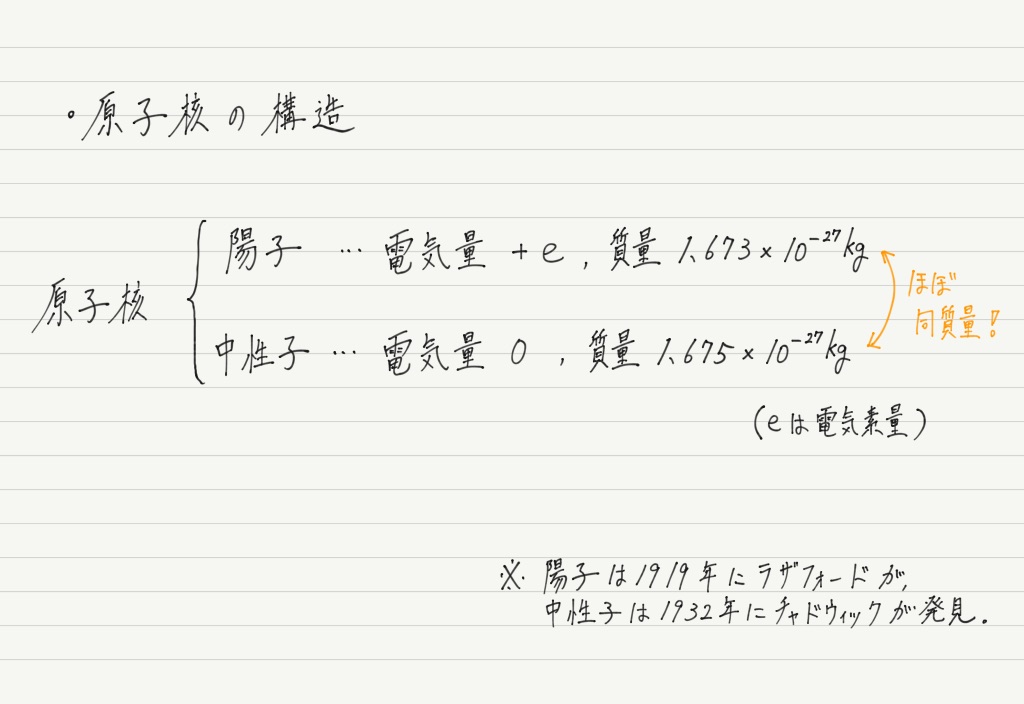 ・原子核の構造
原子核
陽子 … 電気量 +e , 質量 1.673×10⁻²⁷kg
中性子 … 電気量 0 , 質量 1.675×10⁻²⁷kg
ほぼ
同質量!
(eは電気素量)
※ 陽子は1919年にラザフォードが,
中性子は1932年にチャドウィックが発見.